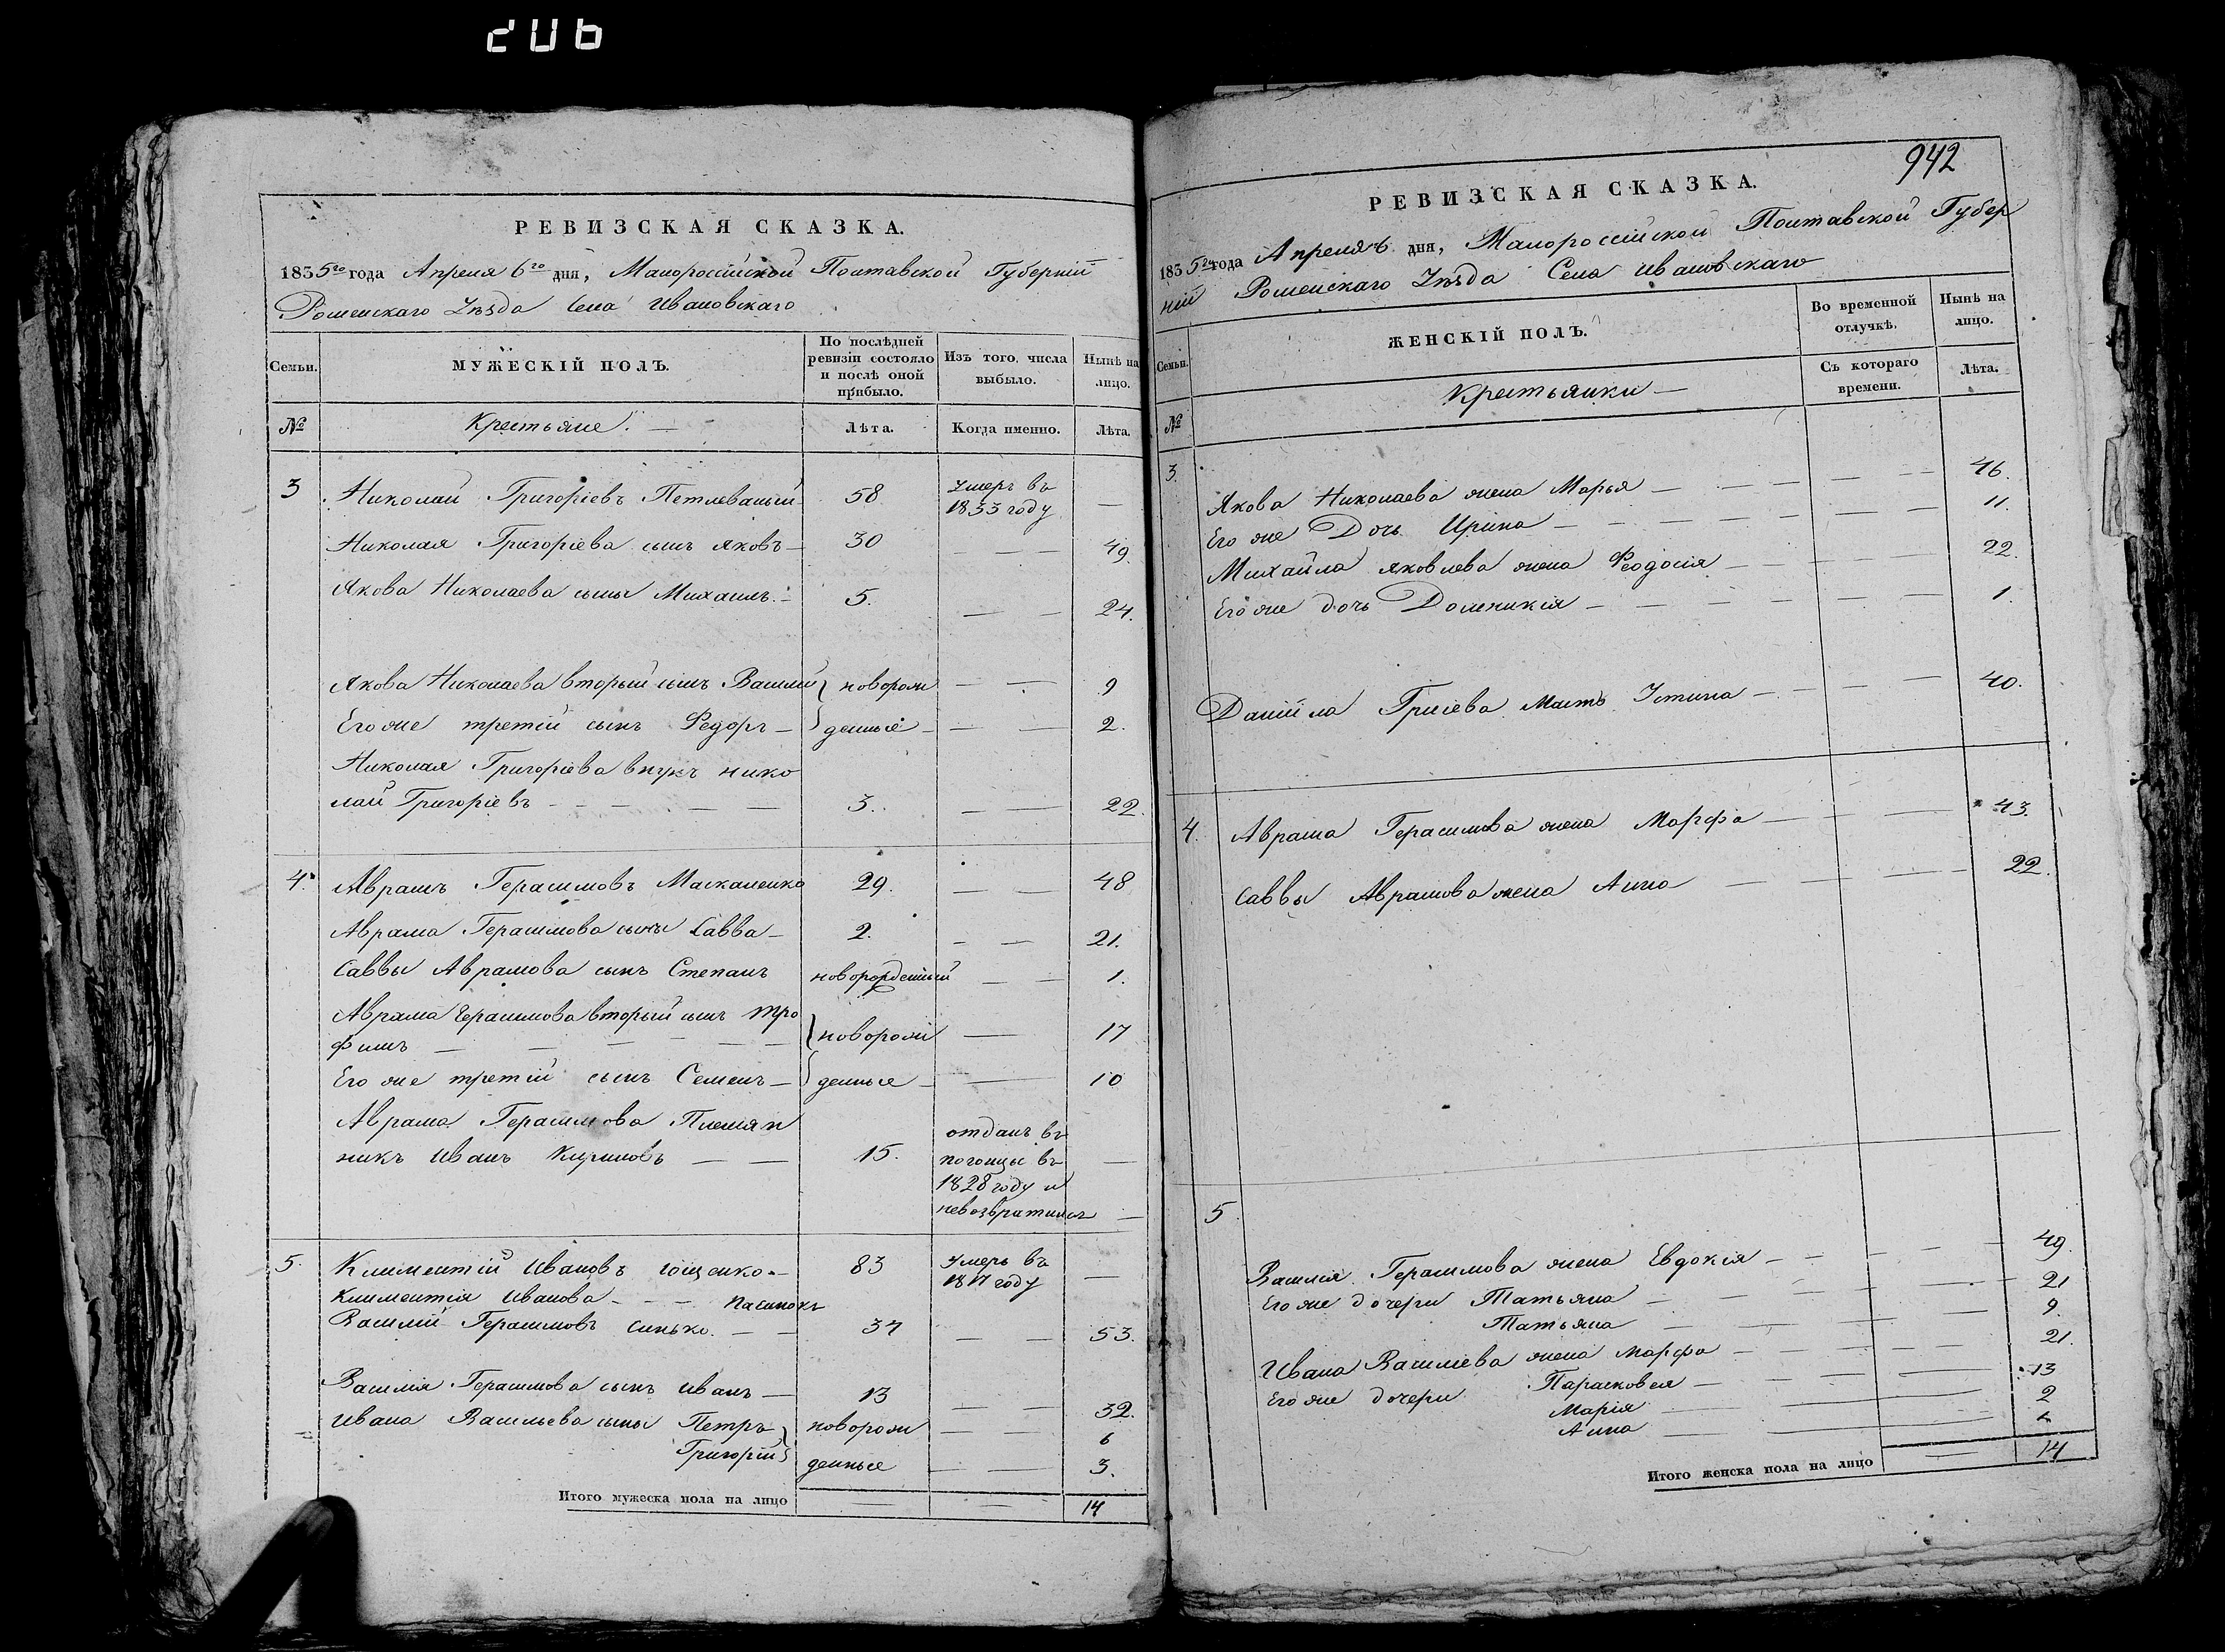 206
РЕВИЗСКАЯ СКАЗКА.
1835го года Апреля 6го дня, Малороссійской Полтавской Губерніи
Роменскаго Уѣзда Села Ивановскаго
Семьи.
МУЖЕСКІЙ ПОЛЪ.
По послѣдней ревизіи состояло и послѣ оной прибыло.
Изъ того числа выбыло.
Нынѣ на лицо.
№
Крестьяне. —
Лѣта.
Когда именно.
Лѣта.
3 Николай Григоріевъ Петлеваный 58 Умеръ въ 1833 году —
Николая Григоріева сынъ Яковъ — 30 — — 49.
Якова Николаева сынъ Михаилъ. — 5. — — 24.
Якова Николаева вторый сынъ Василій } новорож — — 9
Его же третій сынъ Федоръ — } денные — — — 2.
Николая Григоріева внукъ Нико
лай Григоріевъ — — — 3. — — 22.
4. Аврамъ Герасимовъ Маскаленко 29. — — 48
Аврама Герасимова сынъ Савва — 2. — — 21.
Саввы Аврамова сынъ Степанъ новорожденный — — 1.
Аврама Герасимова вторый сынъ Тро
фимъ — — — — } новорож — 17
Его же третій сынъ Семенъ — } денные — — 10
Аврама Герасимова Племян
никъ Иванъ Кириловъ — — 15. отданъ въ
погонцы въ —
1828 году и
невозвратился —
5. Климентій Ивановъ 83 Умеръ въ 1817 году —
Климентія Иванова — — Пасинокъ
Василій Герасимовъ Синько. — — 34 — — 53.
Василія Герасимова сынъ Иванъ — 13 — — 32.
Ивана Васильева сыны Петръ } новорож — — 6
Григорій } денные — — 3.
Итого мужеска пола на лицо — — 14
942
РЕВИЗСКАЯ СКАЗКА.
1835го года Апреля 6 дня, Малороссійской Полтавской Губер
ніи Роменскаго Уѣзда Села Ивановскаго
Семьи.
ЖЕНСКІЙ ПОЛЪ.
Во временной отлучкѣ.
Нынѣ на лицо.
№
Крестьянки —
Съ котораго времени.
Лѣта.
3. Якова Николаева жена Марья — — — — — 46.
Его же Дочь Ирина — — — — — 11.
Михайла Яковлева жена Феодосія — — — — 22.
Его же дочь Доменикія — — — — — 1.
Даніила мать Устина — — — — 40.
4. Аврама Герасимова жена Марфа — — — — 43.
Саввы Аврамова жена Анна — — — — 22.
5.
Василія Герасимова жена Евдокія — — — — 49.
Его же дочери Татьяна — — — — 21
Татьяна — — — 9.
Ивана Васильева жена Марфа — — — — 21.
Его же дочери Парасковея — — — 13
Марія — — 2
Анна — —
Итого женска пола на лицо — 14